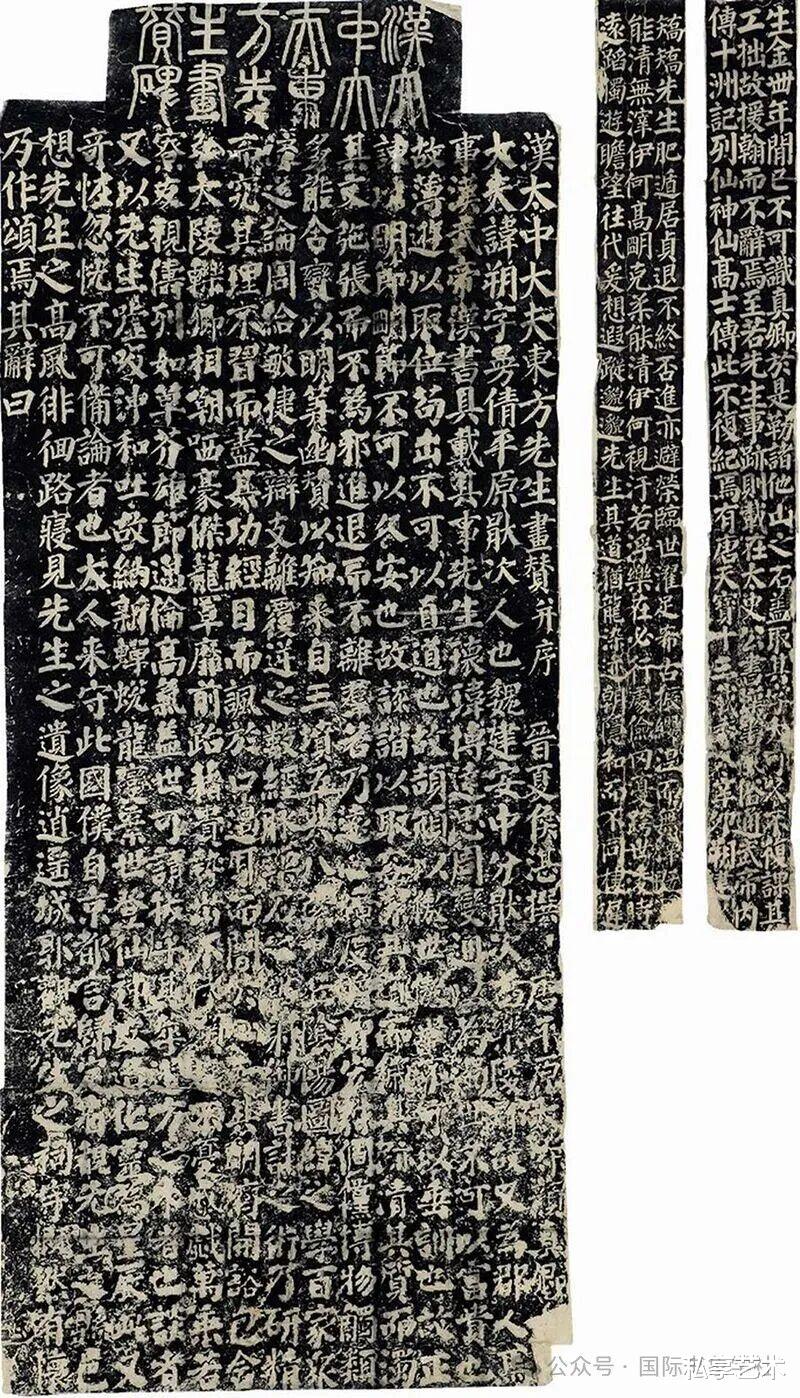 漢太
中大
夫東
方先
生畫
贊碑
漢太中大夫東方先生畫贊并序 晉夏侯湛撰
大夫諱朔字曼倩平原猒次人也魏建安中分猒次 故又為郡人
事漢武帝漢書具載其事先生瓌瑋博達思周變通 為 世不可以富貴也
故薄遊以取位苟出不可以直道也故頡頏以傲世 可以垂訓也故正
諫以明節明節不可以久安也故詼諧以取容 而 其 清其質而濁
其文弛張而不為邪進退而不離羣若乃遠 度 倜儻博物觸類
多能合變以明筭幽贊以知來自三墳五典八 陰陽圖緯之學百家衆
流之論周給敏捷之辯支離覆逆之數經脉 石之 射御書計之術乃研精
而究其理不習而盡其功經目而諷於口過耳而闇 其明濟開豁包含
弘大陵轢卿相嘲哂豪傑籠罩靡前跆籍貴勢出不 不憂慼戲萬乘若
寮友視儔列如草芥雄節邁倫高氣蓋世可謂拔乎其萃 方之外者也談者
又以先生噓吸沖和吐故納新蟬蛻龍變棄世登仙神交造化靈為星辰此又
奇怪惚恍不可備論者也大人來守此國僕自京都言歸 省覩先生之縣邑
想先生之高風徘徊路寢見先生之遺像逍遙城郭觀先生之祠宇慨然有懷
乃作頌焉其辭曰
矯矯先生肥遁居貞退不終否進亦避榮臨世濯足希古振纓涅而無滓既
能清無滓伊何高明克柔能清伊何視汙若浮樂在必行處儉罔憂跨世 時
遠蹈獨遊瞻望往代爰想遐蹤邈邈先生其道猶龍染迹朝隱和而不同棲遲
生金卅年間已不可識真卿於是勒諸他山之石盖取其 可久不復課其
工拙故援翰而不辭焉至若先生事跡則載在太史公書 書風俗通武帝內
傳十洲記列仙神仙高士傳此不復紀焉有唐天寶十三 辛卯朔建
公众号 · 国际私享艺术